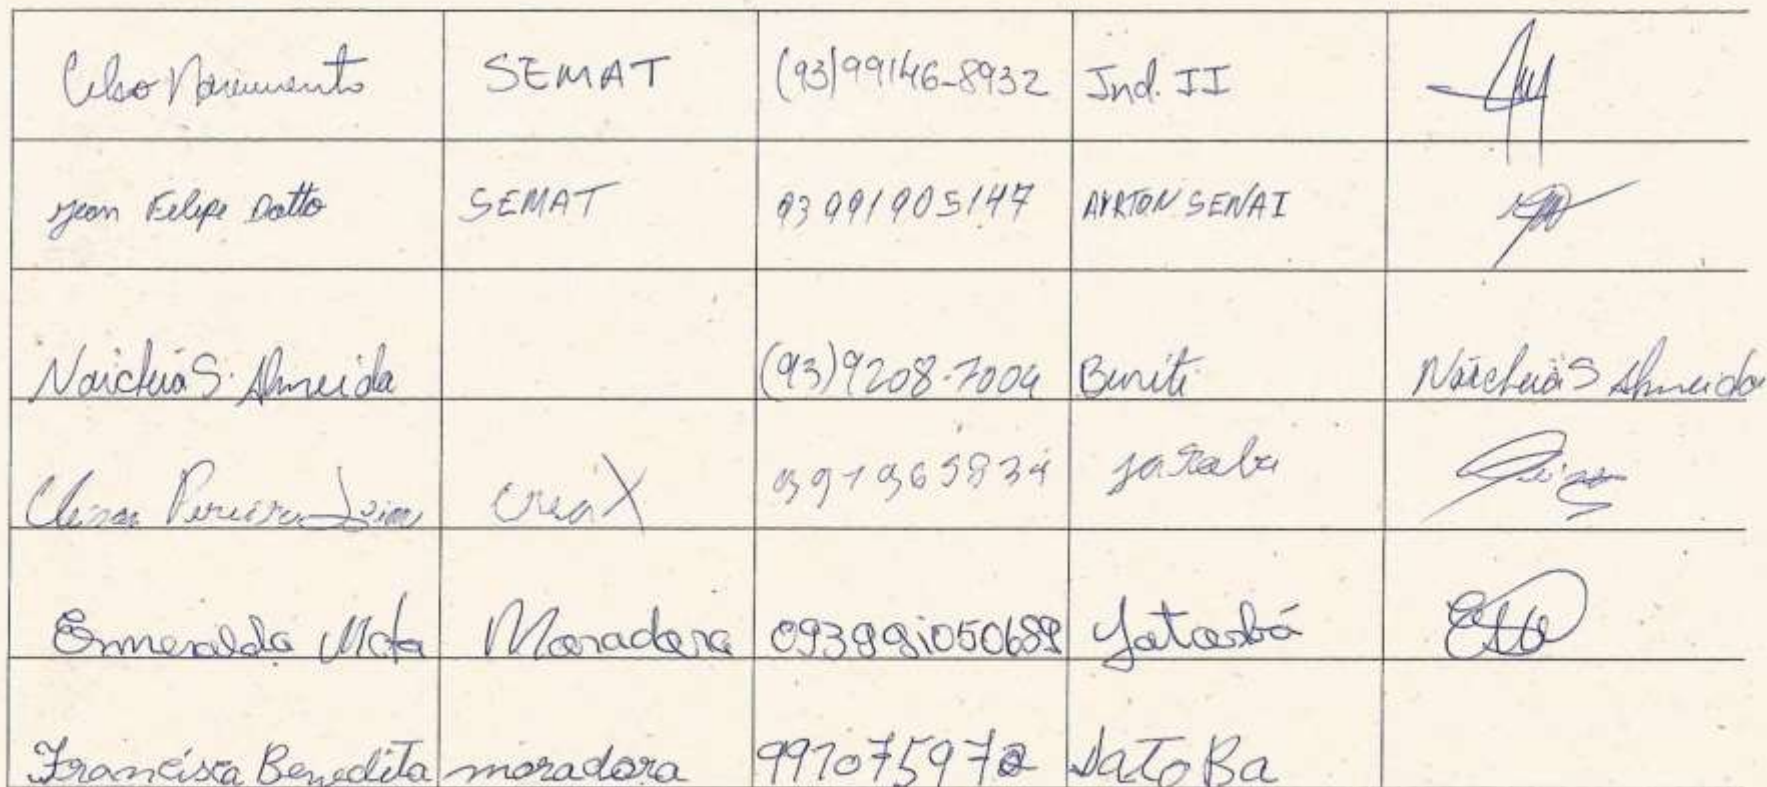 Celso Nascimento SEMAT (93)99146-8932 Ind. II
Jean Felipe Datto SEMAT 93 991905147 AYRTON SENAI
Naicheia S. Almeida (93)9208-7004 Buriti Naicheia S Almeida
Pereira 991965834
Esmeralda Mota Moradora 093991050689 Jatobá
Francisca Benedita moradora 991075972 JaToBa